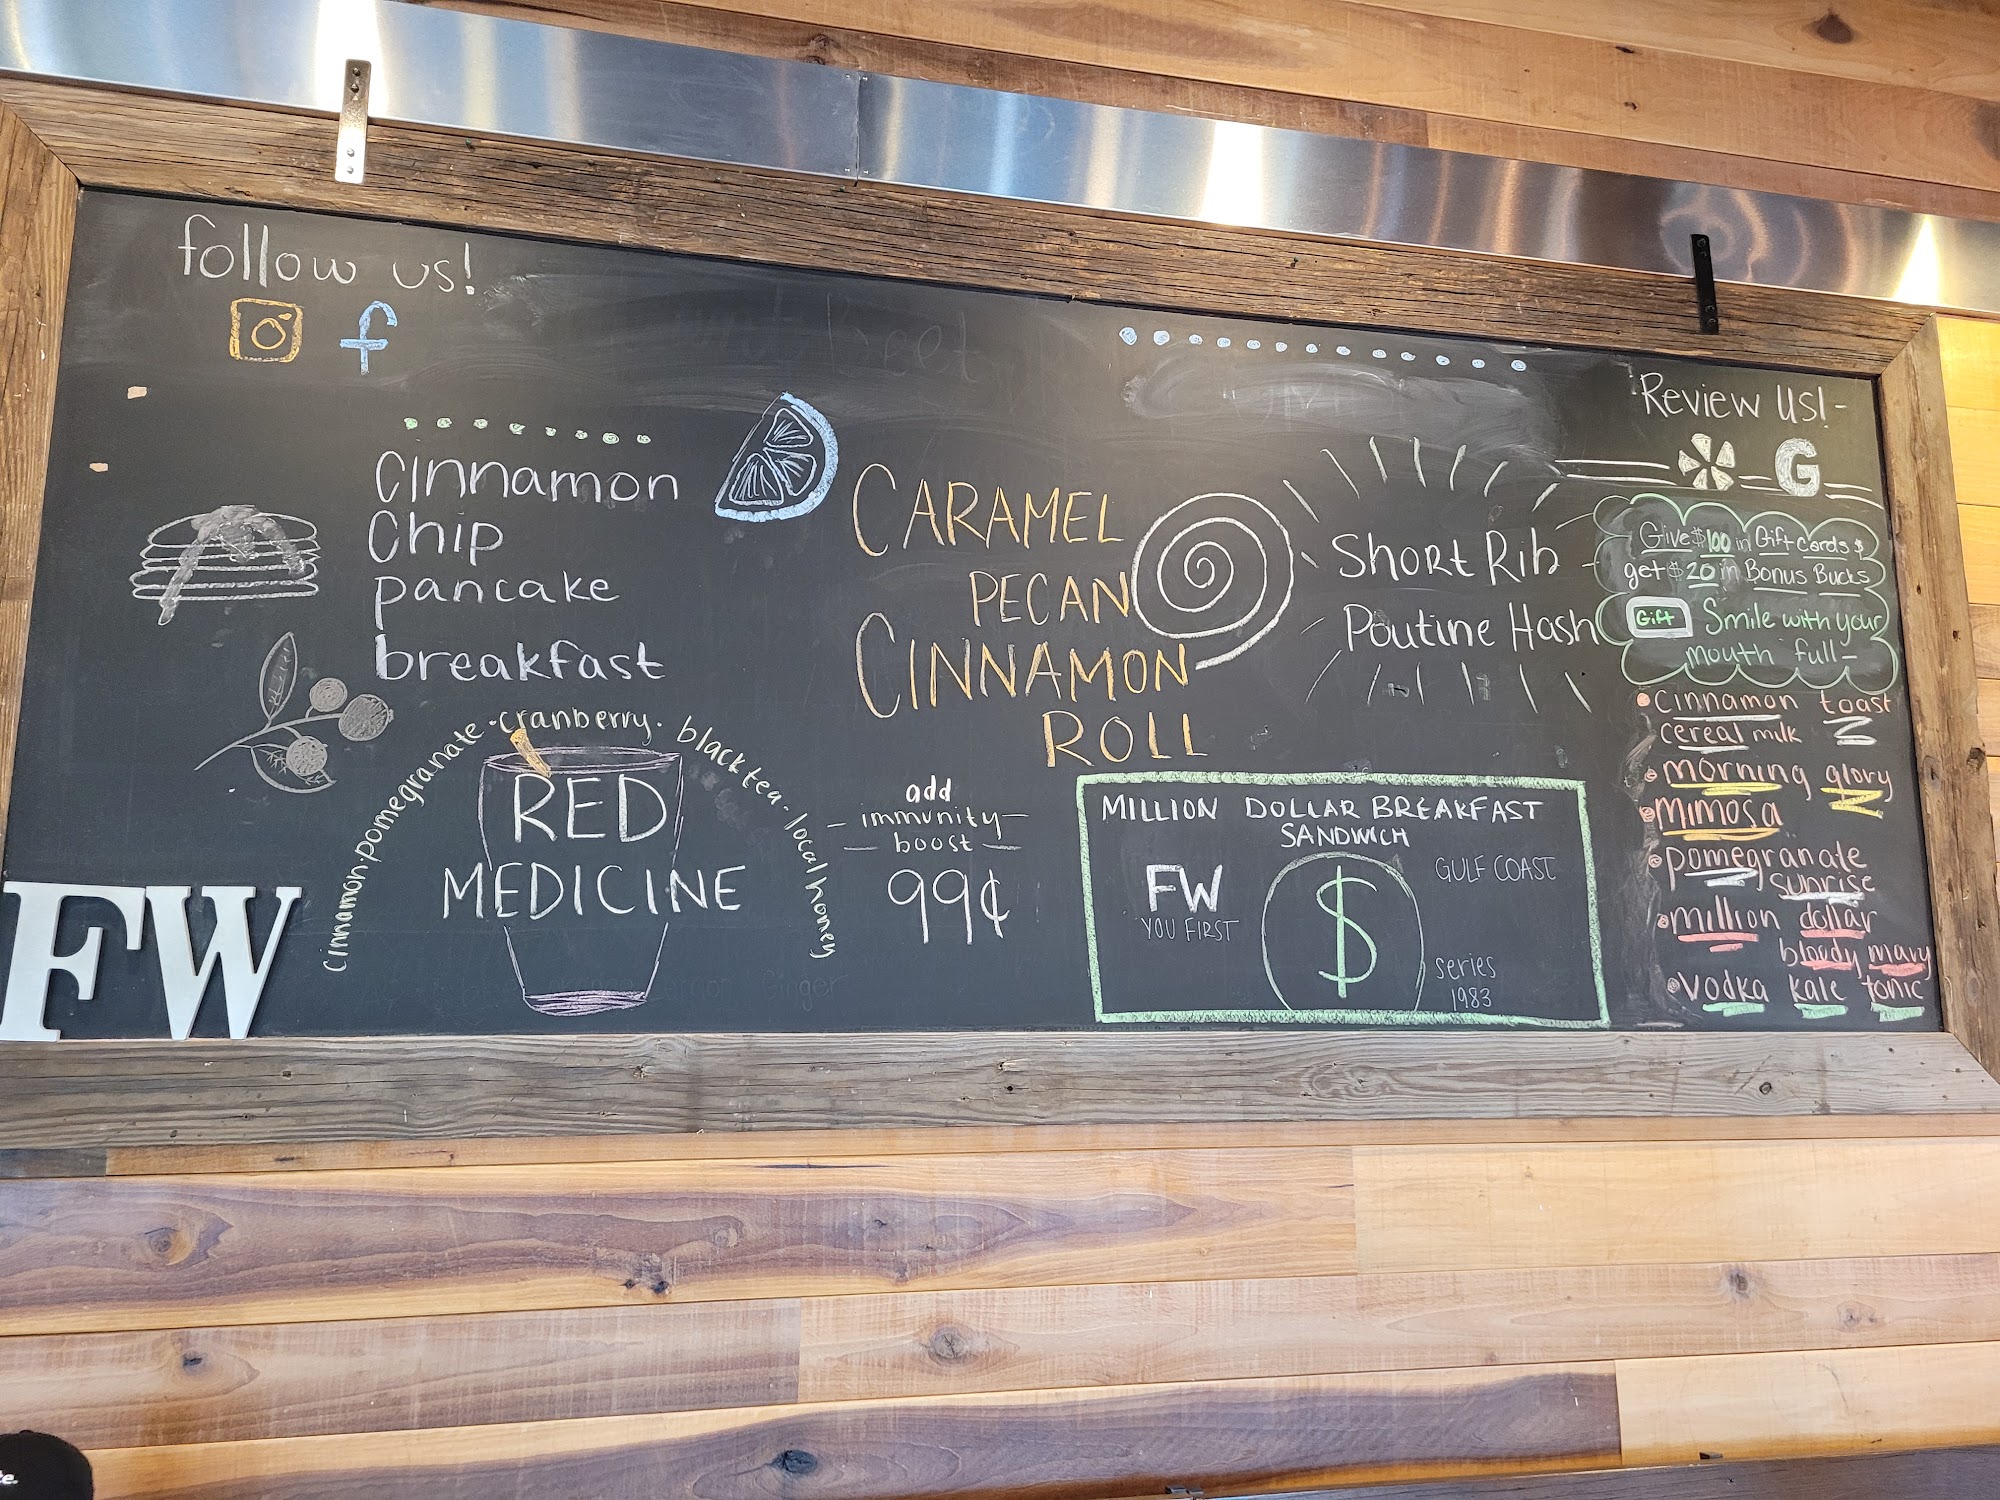 follow us!
f
cinnamon
chip
pancake
breakfast
cinnamon · pomegranate · cranberry · black tea · local honey
RED
MEDICINE
FW
CARAMEL
PECAN
CINNAMON
ROLL
add
immunity
boost
99¢
Short Rib
Poutine Hash
MILLION DOLLAR BREAKFAST
SANDWICH
FW
YOU FIRST
$
GULF COAST
series
1983
Review Us!
G
Give $100 in Gift cards &
get $20 in Bonus Bucks
Gift
Smile with your
mouth full
cinnamon toast
cereal milk
morning glory
mimosa
pomegranate
sunrise
million dollar
bloody mary
vodka kale tonic